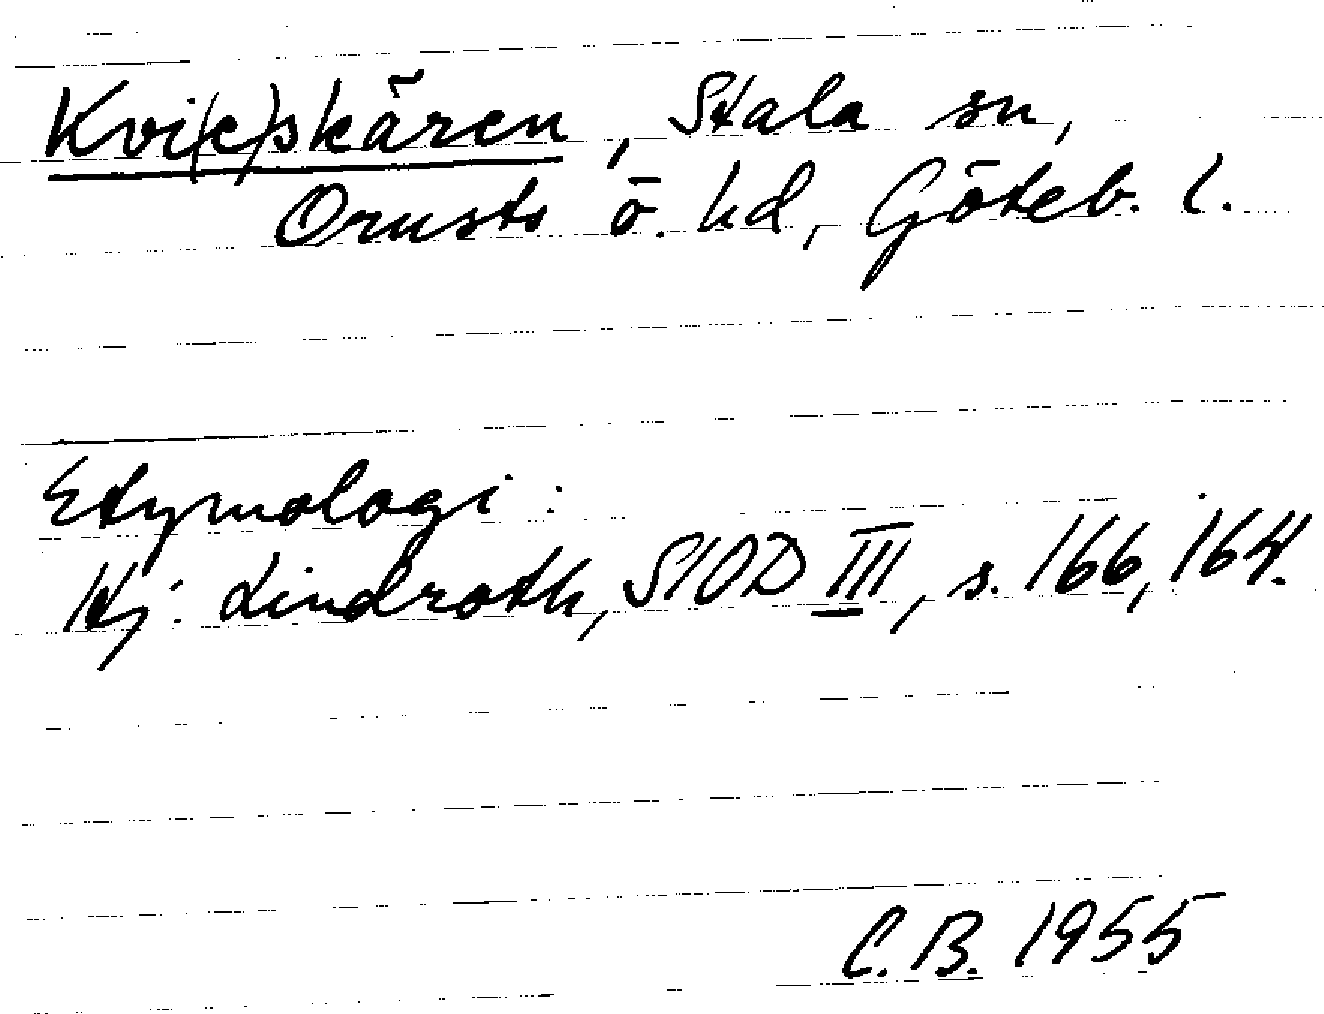 Kvi(c)skären, Stala sn,
Orusts ö. hd, Göteb. l.
Etymologi:
Hj. Lindroth, SIOD III, s. 166, 164.
C.B. 1955